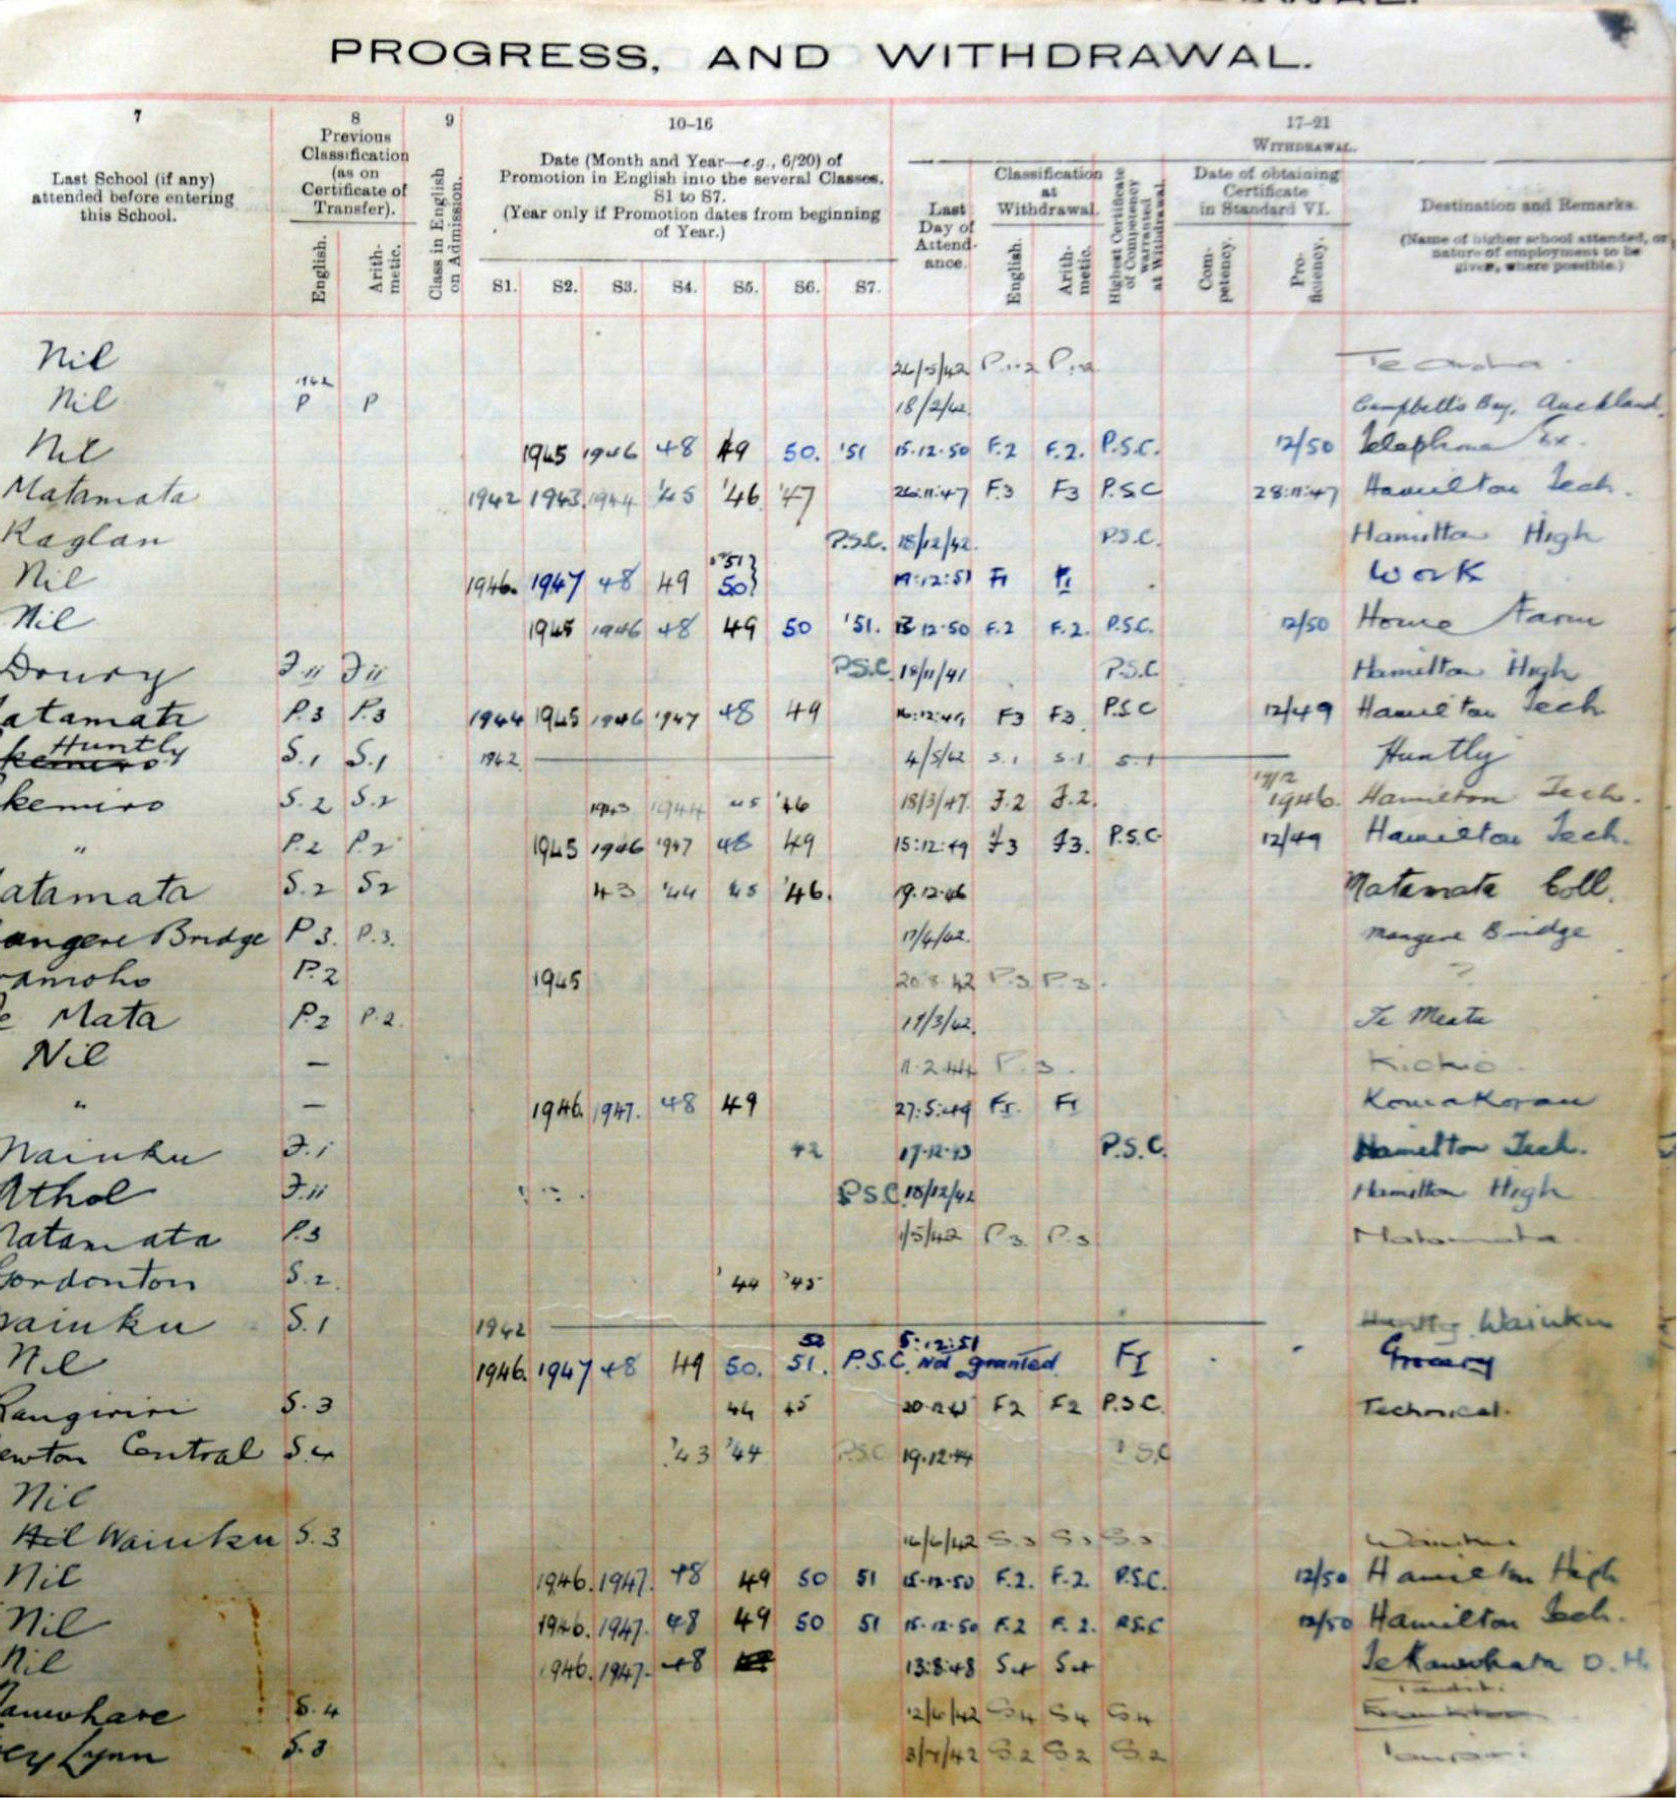 PROGRESS, AND WITHDRAWAL.
7 8 9 10-16 17-21
Last School (if any) attended before entering this School.
Previous Classification (as on Certificate of Transfer).
English. Arithmetic.
Class in English on Admission.
Date (Month and Year—e.g., 6/20) of Promotion in English into the several Classes, S1 to S7.
(Year only if Promotion dates from beginning of Year.)
S1. S2. S3. S4. S5. S6. S7.
WITHDRAWAL.
Last Day of Attendance.
Classification at Withdrawal.
English. Arithmetic.
Highest Certificate of Competency warranted at Withdrawal.
Date of obtaining Certificate in Standard VI.
Competency. Proficiency.
Destination and Remarks.
(Name of higher school attended, or nature of employment to be given, where possible.)
Nil
Nil P P 18/2/42. Campbell's Bay, Auckland.
Nil 1945 1946 48 49 50. '51 15.12.50 F.2 F.2. P.S.C. 12/50 Telephone Ex.
Matamata 1942 1943. 1944 '45 '46 '47 26:11:47 F.3 F3 P.S.C 28:11:47 Hamilton Tech.
Raglan P.S.C. 18/12/42. P.S.C. Hamilton High
Nil 1946. 1947 48 49 50} '51} 19:12:51 F1 F1 Work
Nil 1945 1946 48 49 50 '51. 12.50 F.2 F.2. P.S.C. 12/50 Home Farm
Drury F.ii F.ii P.S.C. 18/11/41 P.S.C Hamilton High
atamata P.3 P.3 1944 1945 1946 1947 48 49 F3 F3. P.S.C 12/49 Hamilton Tech
Huntly S.1 S.1 1942 4/5/42 S.1 S.1 S.1 Huntly
kemiro S.2 S.2 1943 1944 45 '46 18/3/47. F.2 F.2. 1946. Hamilton Tech.
" P.2 P.2 1945 1946 '947 48 49 15:12:49 F3 F3. P.S.C 12/49 Hamilton Tech.
atamata S.2 S2 43 '44 45 '46. 19.12.46 Matamata Coll.
angere Bridge P3. P.3. 17/4/42. Mangere Bridge
amoho P.2 1945 20.8.42 P.3 P.3. ?
Mata P.2 P.2. 17/3/42. Te Mata
Nil — 11.2.44 P.3.
" — 1946. 1947. 48 49 27:5:49 F1. F1
Waiuku F.i 42 17.12.43 P.S.C. Hamilton Tech.
Athol F.ii P.S.C. 18/12/42 Hamilton High
Matamata P.3 1/5/42 P3 P.3 Matamata
Gordonton S.2. '44 '45
Waiuku S.1 1942 Waiuku
Nil 1946. 1947 48 49 50. 51. 52 P.S.C. not granted 5:12:51 F1 Grocery
Rangiriri S.3 44 45 20.12.45 F2 F2 P.S.C. Technical.
ewton Central S.4 '43 '44 P.S.C 19.12.44 P.S.C
Nil
Nil Waiuku S.3 16/6/42 S.3 S.3 S.3 Waiuku
Nil 1946. 1947. 48 49 50 51 15.12.50 F.2. F.2. P.S.C. 12/50 Hamilton High
Nil 1946. 1947. 48 49 50 51 15.12.50 F.2 F.2. P.S.C 12/50 Hamilton Tech.
Nil 1946. 1947. 48 13:8:48 S4 S4 Te Kauwhata D.H.
amwhare S.4 12/6/42 S4 S4 S4
ey Lynn S.3 3/7/42 S.2 S2 S.2